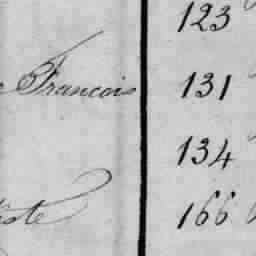 123
Francois 131
134
iste 166